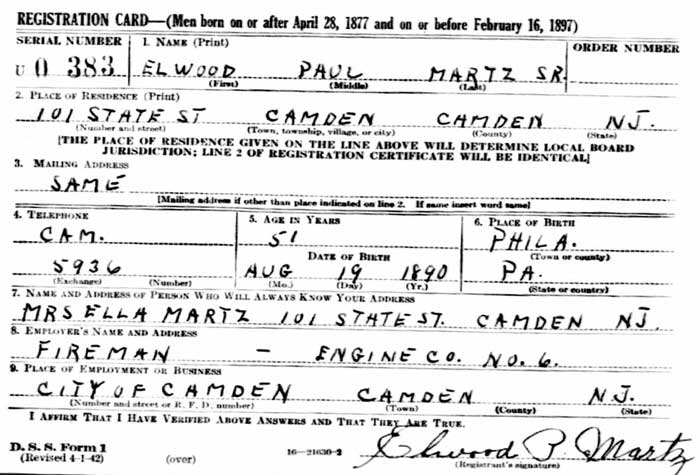 REGISTRATION CARD—(Men born on or after April 28, 1877 and on or before February 16, 1897)
SERIAL NUMBER 1. NAME (Print) ORDER NUMBER
U 0 383 ELWOOD PAUL MARTZ SR.
(First) (Middle) (Last)
2. PLACE OF RESIDENCE (Print)
101 STATE ST CAMDEN CAMDEN NJ.
(Number and street) (Town, township, village, or city) (County) (State)
[THE PLACE OF RESIDENCE GIVEN ON THE LINE ABOVE WILL DETERMINE LOCAL BOARD
JURISDICTION; LINE 2 OF REGISTRATION CERTIFICATE WILL BE IDENTICAL]
3. MAILING ADDRESS
SAME
[Mailing address if other than place indicated on line 2. If same insert word same]
4. TELEPHONE 5. AGE IN YEARS 6. PLACE OF BIRTH
CAM. 51 PHILA.
DATE OF BIRTH (Town or county)
5936 AUG 19 1890 PA.
(Exchange) (Number) (Mo.) (Day) (Yr.) (State or country)
7. NAME AND ADDRESS OF PERSON WHO WILL ALWAYS KNOW YOUR ADDRESS
MRS ELLA MARTZ 101 STATE ST. CAMDEN NJ.
8. EMPLOYER'S NAME AND ADDRESS
FIREMAN - ENGINE CO. NO. 6.
9. PLACE OF EMPLOYMENT OR BUSINESS
CITY OF CAMDEN CAMDEN N.J.
(Number and street or R. F. D. number) (Town) (County) (State)
I AFFIRM THAT I HAVE VERIFIED ABOVE ANSWERS AND THAT THEY ARE TRUE.
D. S. S. Form 1
(Revised 4-1-42) (over) 16—21630-2 Elwood P. Martz
(Registrant's signature)